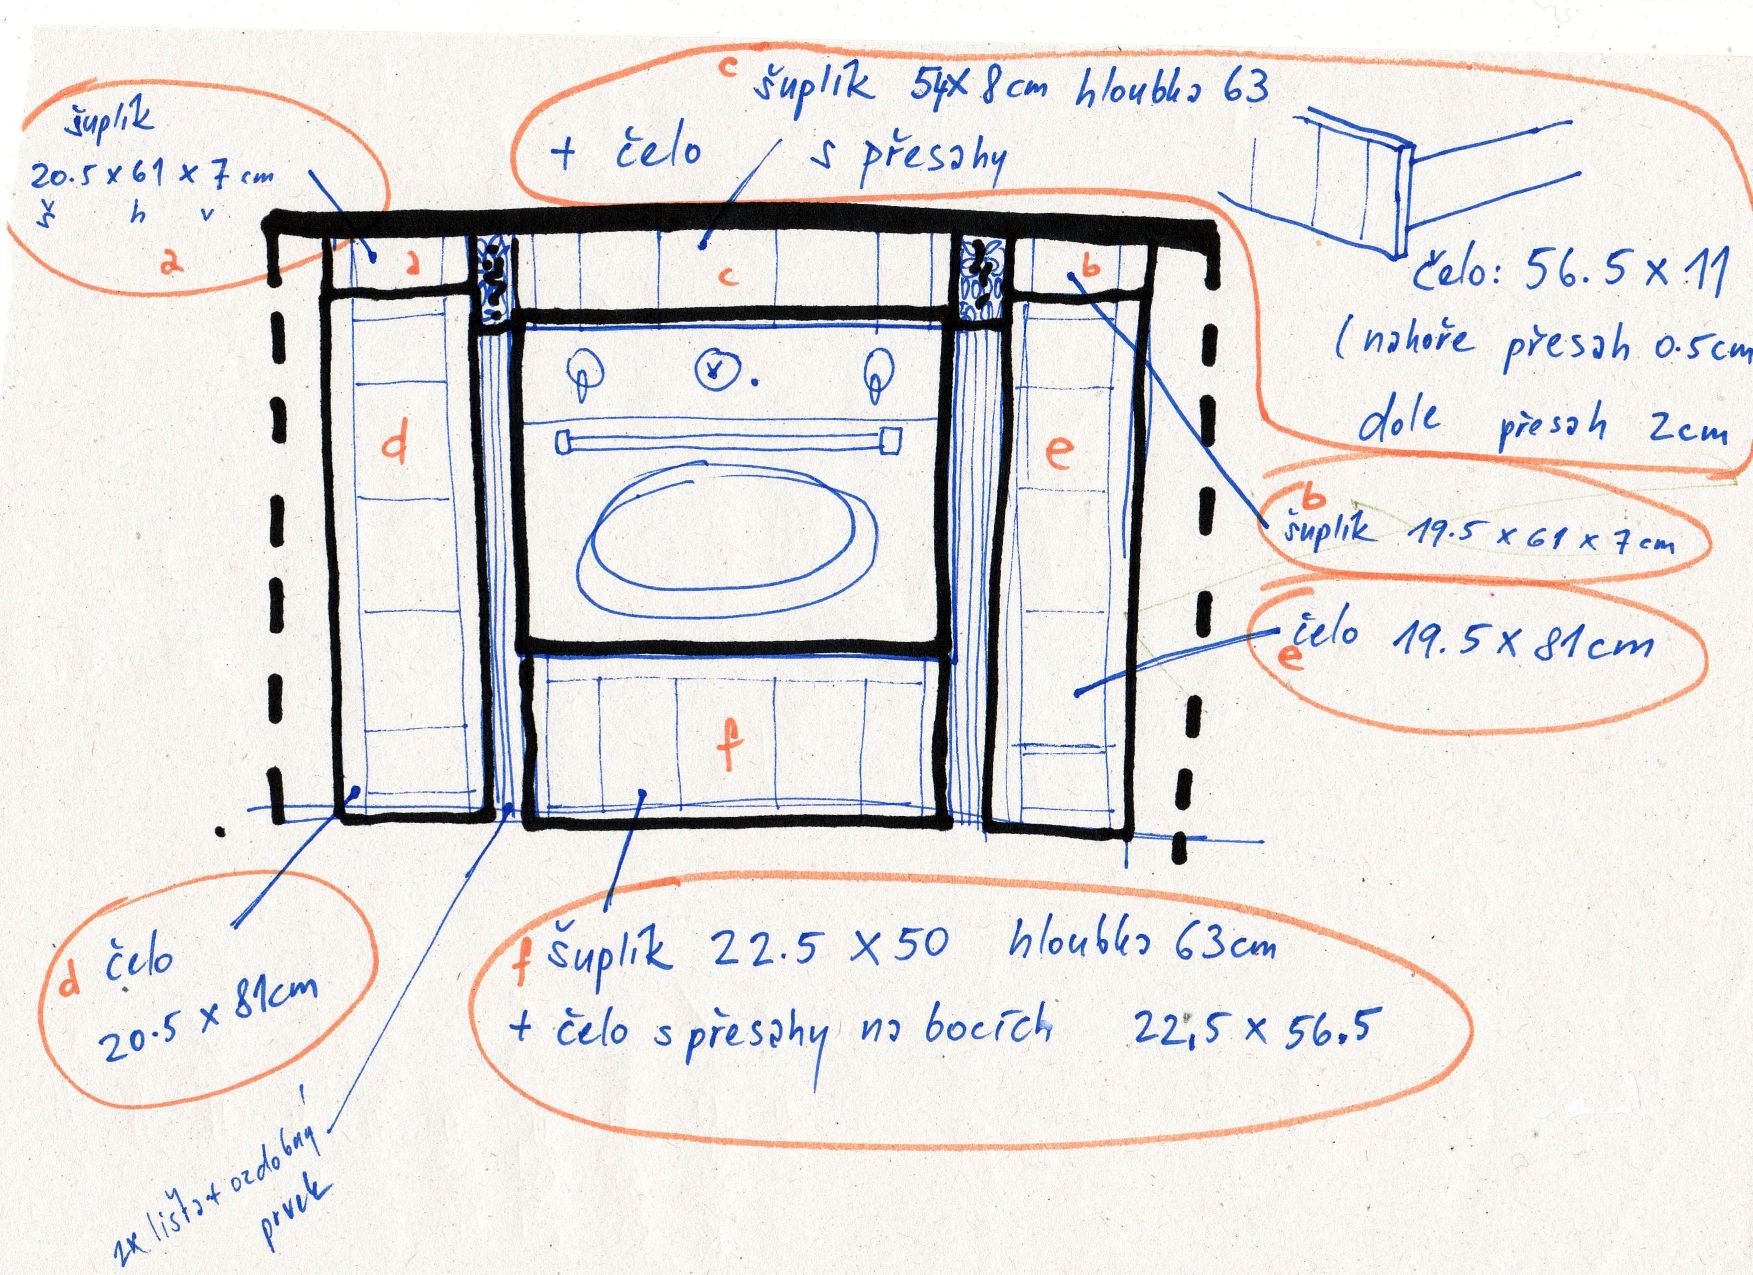 c
šuplík 54x8cm hloubka 63
+ čelo s přesahy
šuplík
20.5 x 61 x 7 cm
š h v
a
čelo: 56.5 x 11
(nahoře přesah 0.5cm
dole přesah 2cm
a
c
b
d
e
b
šuplík 19.5 x 61 x 7 cm
čelo 19.5 x 81cm
e
f
d čelo
20.5 x 81cm
f šuplík 22.5 x 50 hloubka 63cm
+ čelo s přesahy na bocích 22,5 x 56.5
2x lišta + ozdobný
prvek